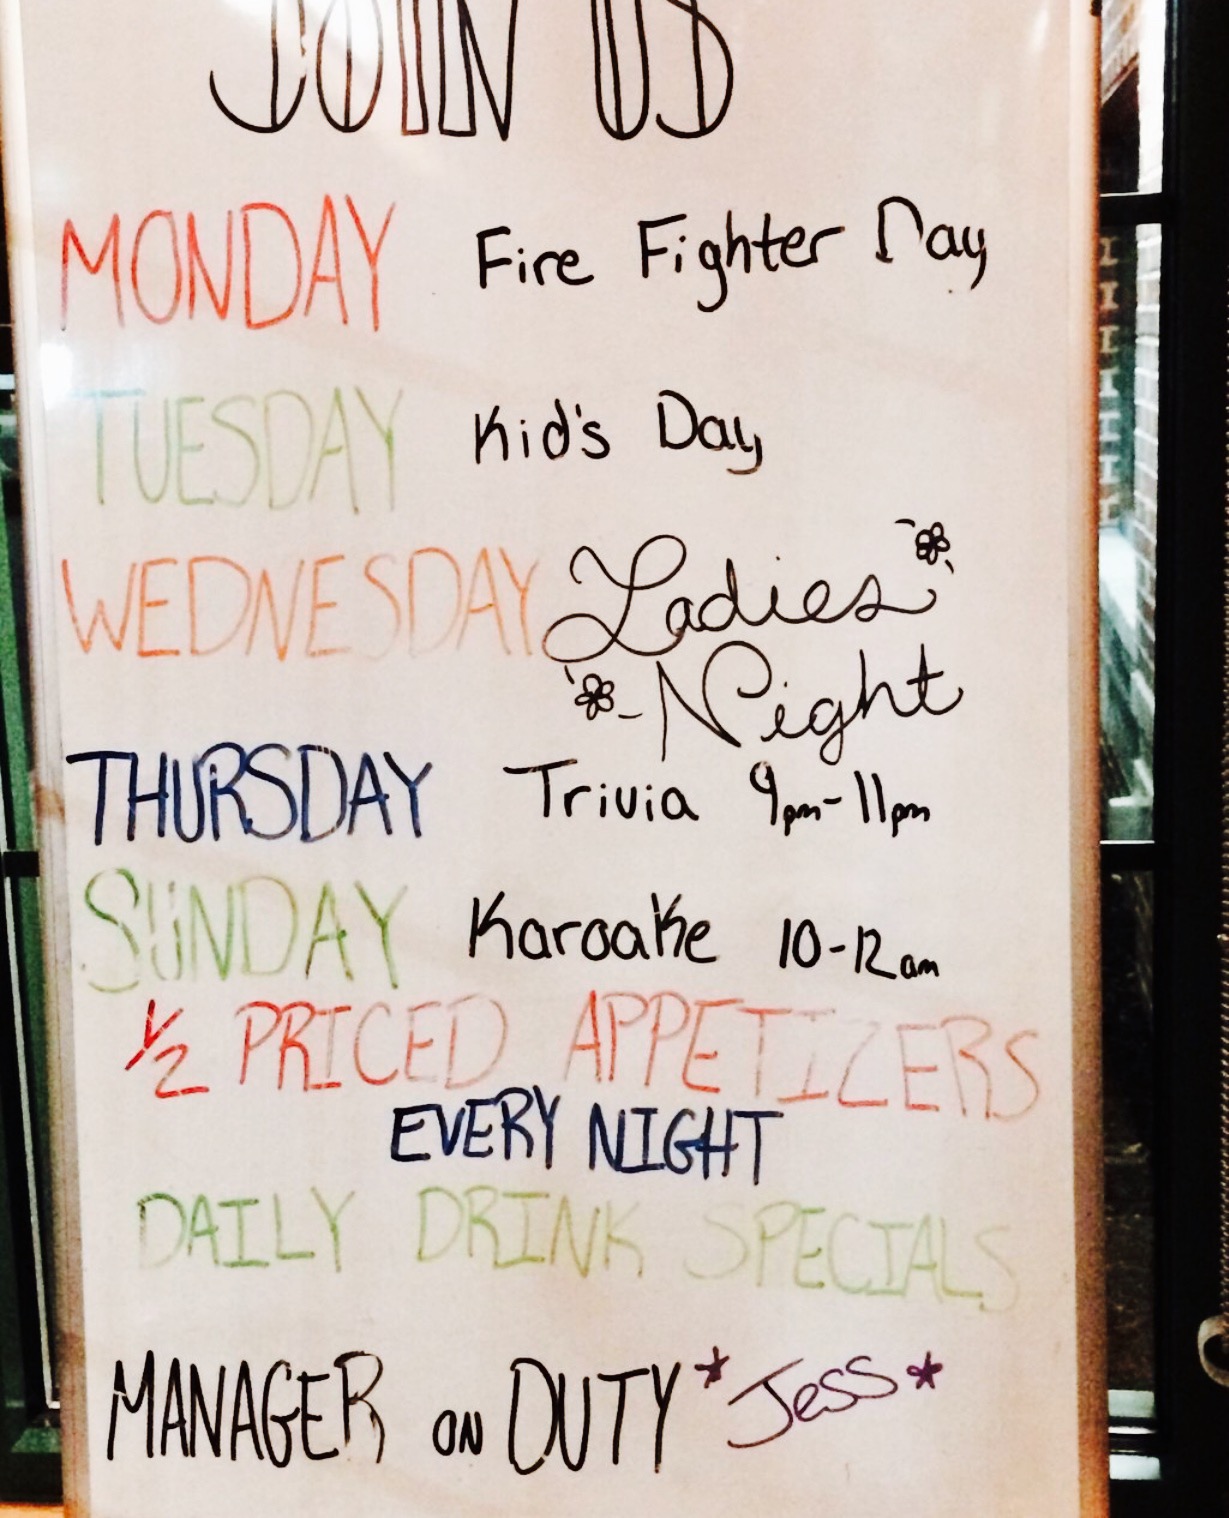 JOIN US
MONDAY Fire Fighter Day
TUESDAY Kid's Day
WEDNESDAY Ladies
Night
THURSDAY Trivia 9pm-11pm
SUNDAY Karoake 10-12am
1/2 PRICED APPETIZERS
EVERY NIGHT
DAILY DRINK SPECIALS
MANAGER ON DUTY *Jess*